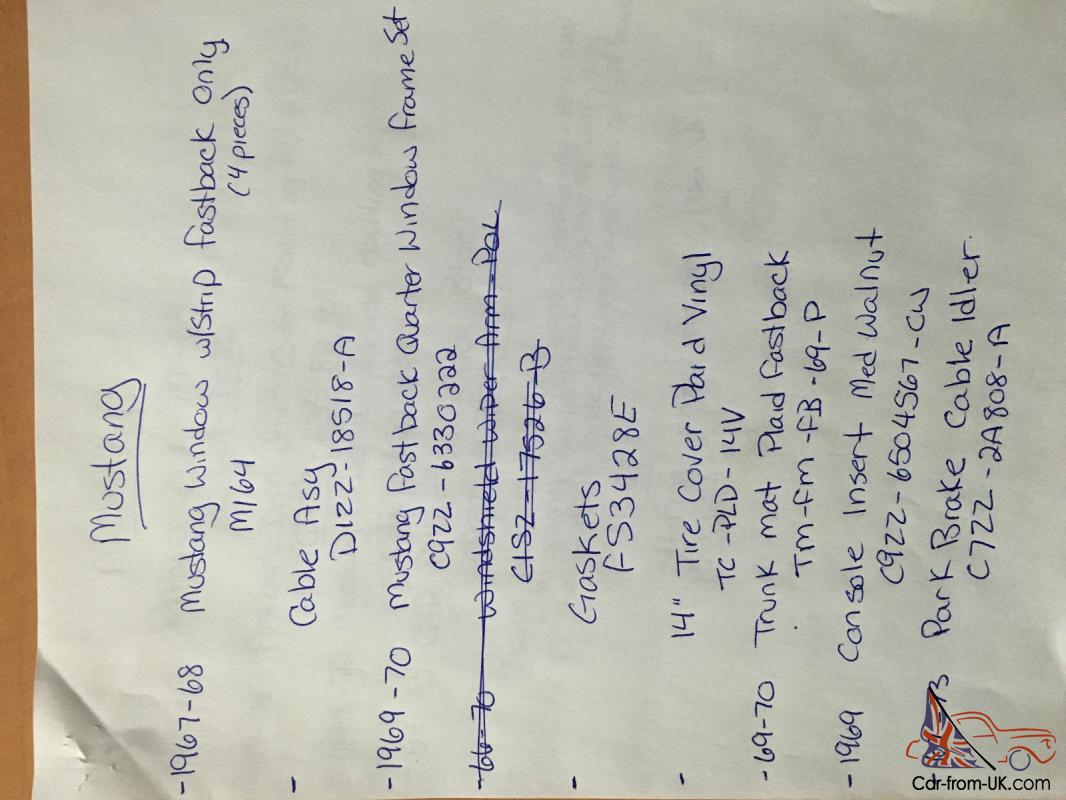 Mustang
-1967-68 Mustang Window w/Strip Fastback Only
M164 (4 pieces)
- Cable Asy
D1ZZ-18518-A
-1969-70 Mustang Fastback Quarter Window Frame Set
C9ZZ-6330222
-66-70 Windshield Wiper Arm-Pol
C1SZ-17526-B
- Gaskets
FS3428E
- 14" Tire Cover Plaid Vinyl
TC-PLD-14V
-69-70 Trunk mat Plaid Fastback
Tm-fm-FB-69-P
-1969 Console Insert Med Walnut
C9ZZ-6504567-CW
73 Park Brake Cable Idler.
C7ZZ-2A808-A
Car-from-UK.com